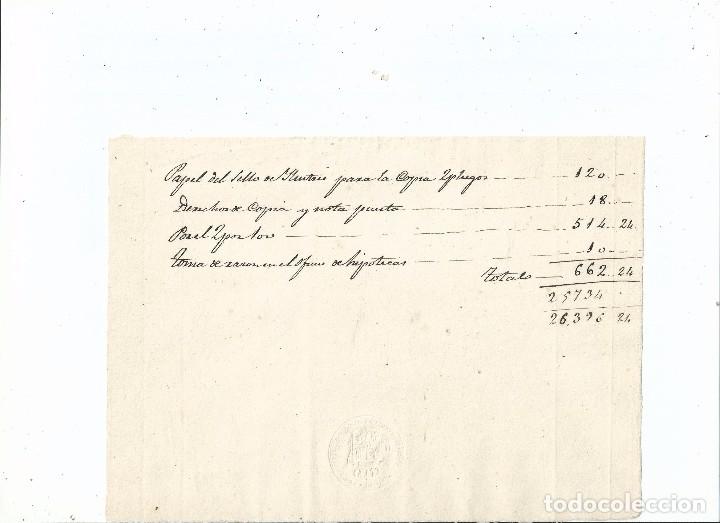 Papel del Sello de Ilustres para la Copia 2 pliegos — 120
Derechos de Copia y nota puesta — 18
Por el 2 por 100 — 514..24
Toma de razon en el oficio de hipotecas — 10
Total — 662..24
25734
26,396 24
todocoleccion